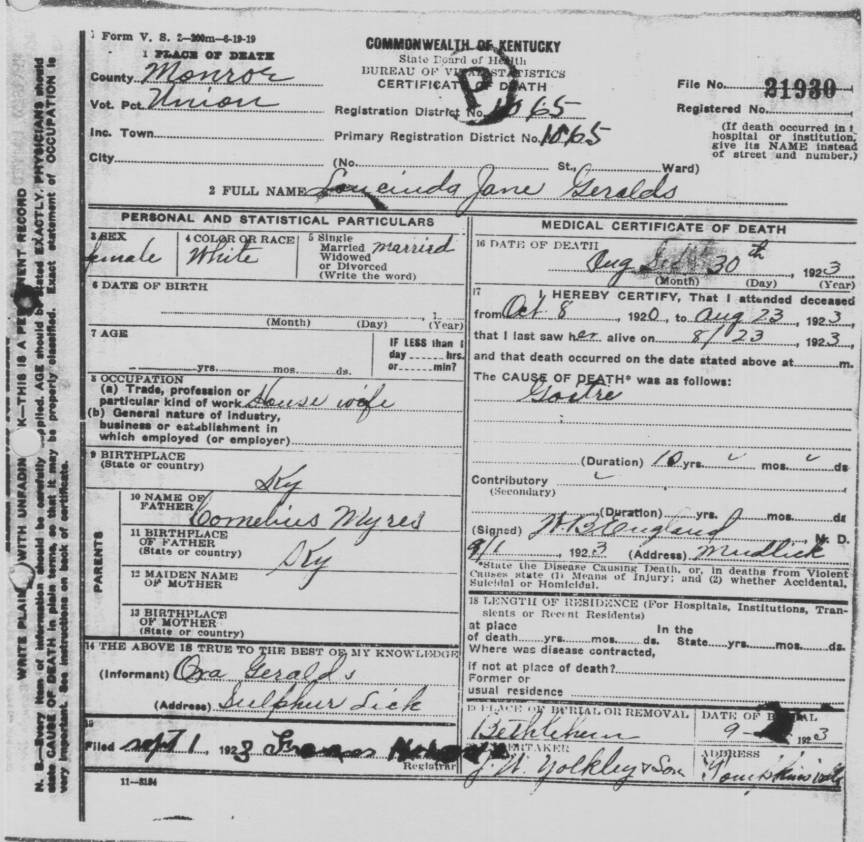 Form V. S. 2-200m-6-19-19
1 PLACE OF DEATH
County Monroe
Vot. Pct. Union
Inc. Town
City
COMMONWEALTH OF KENTUCKY
State Board of Health
BUREAU OF VITAL STATISTICS
CERTIFICATE OF DEATH
Registration District No. 1065
Primary Registration District No. 1065
(No. St., Ward)
File No. 21930
Registered No.
(If death occurred in
hospital or institution,
give its NAME instead
of street and number.)
2 FULL NAME Loucinda Jane Geralds
PERSONAL AND STATISTICAL PARTICULARS
3 SEX female
4 COLOR OR RACE White
5 Single
Married
Widowed
or Divorced
(Write the word)
married
6 DATE OF BIRTH
, 1
(Month) (Day) (Year)
7 AGE
yrs. mos. ds.
IF LESS than 1
day hrs.
or min?
8 OCCUPATION
(a) Trade, profession or
particular kind of work House wife
(b) General nature of industry,
business or establishment in
which employed (or employer)
9 BIRTHPLACE
(State or country)
Ky
PARENTS
10 NAME OF
FATHER
Cornelius Myres
11 BIRTHPLACE
OF FATHER
(State or country)
Ky
12 MAIDEN NAME
OF MOTHER
13 BIRTHPLACE
OF MOTHER
(State or country)
14 THE ABOVE IS TRUE TO THE BEST OF MY KNOWLEDGE
(Informant) Ova Geralds
(Address) Sulphur Lick
15
Filed Sept 1, 1923
Registrar
11-3184
MEDICAL CERTIFICATE OF DEATH
16 DATE OF DEATH
Aug 30th, 1923
(Month) (Day) (Year)
17 I HEREBY CERTIFY, That I attended deceased
from Oct 8, 1920, to Aug 23, 1923,
that I last saw her alive on 8/23, 1923,
and that death occurred on the date stated above at m.
The CAUSE OF DEATH* was as follows:
Goitre
(Duration) 10 yrs. mos. ds
Contributory
(Secondary)
(Duration) yrs. mos. ds
(Signed) W. B. England M. D.
9/1, 1923 (Address) Mudlick
*State the Disease Causing Death, or, in deaths from Violent
Causes state (1) Means of Injury; and (2) whether Accidental,
Suicidal or Homicidal.
18 LENGTH OF RESIDENCE (For Hospitals, Institutions, Tran-
sients or Recent Residents)
at place In the
of death yrs. mos. ds. State yrs. mos. ds.
Where was disease contracted,
if not at place of death?
Former or
usual residence
19 PLACE OF BURIAL OR REMOVAL
Bethlehem
DATE OF BURIAL
9- 1923
UNDERTAKER
J. W. Yolkley & Son
ADDRESS
Tompkinsville
WRITE PLAINLY WITH UNFADING INK—THIS IS A PERMANENT RECORD
N. B.—Every item of information should be carefully supplied. AGE should be stated EXACTLY. PHYSICIANS should
state CAUSE OF DEATH in plain terms, so that it may be properly classified. Exact statement of OCCUPATION is
very important. See instructions on back of certificate.